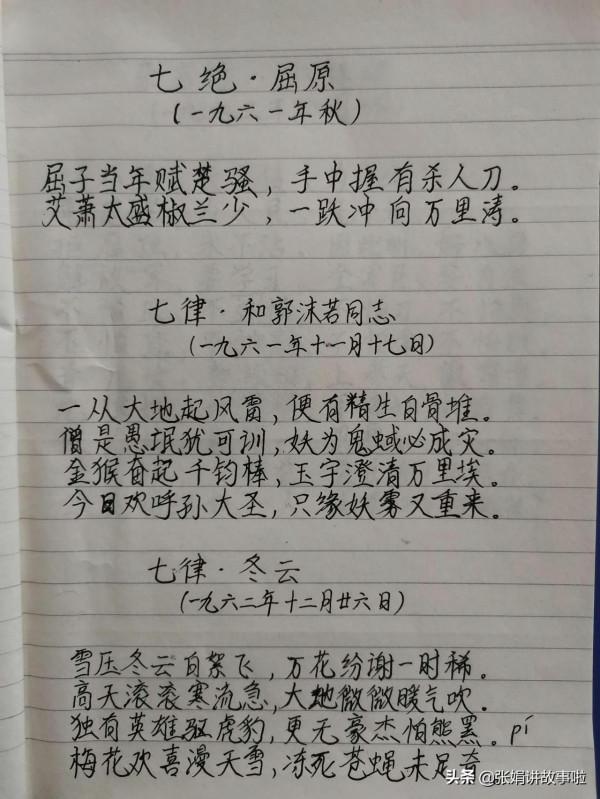 七绝·屈原
(一九六一年秋)
屈子当年赋楚骚，手中握有杀人刀。
艾萧太盛椒兰少，一跃冲向万里涛。
七律·和郭沫若同志
(一九六一年十一月十七日)
一从大地起风雷，便有精生白骨堆。
僧是愚氓犹可训，妖为鬼蜮必成灾。
金猴奋起千钧棒，玉宇澄清万里埃。
今日欢呼孙大圣，只缘妖雾又重来。
七律·冬云
(一九六二年十二月廿六日)
雪压冬云白絮飞，万花纷谢一时稀。
高天滚滚寒流急，大地微微暖气吹。
独有英雄驱虎豹，更无豪杰怕熊罴。pí
梅花欢喜漫天雪，冻死苍蝇未足奇
头条 @张娟讲故事啦